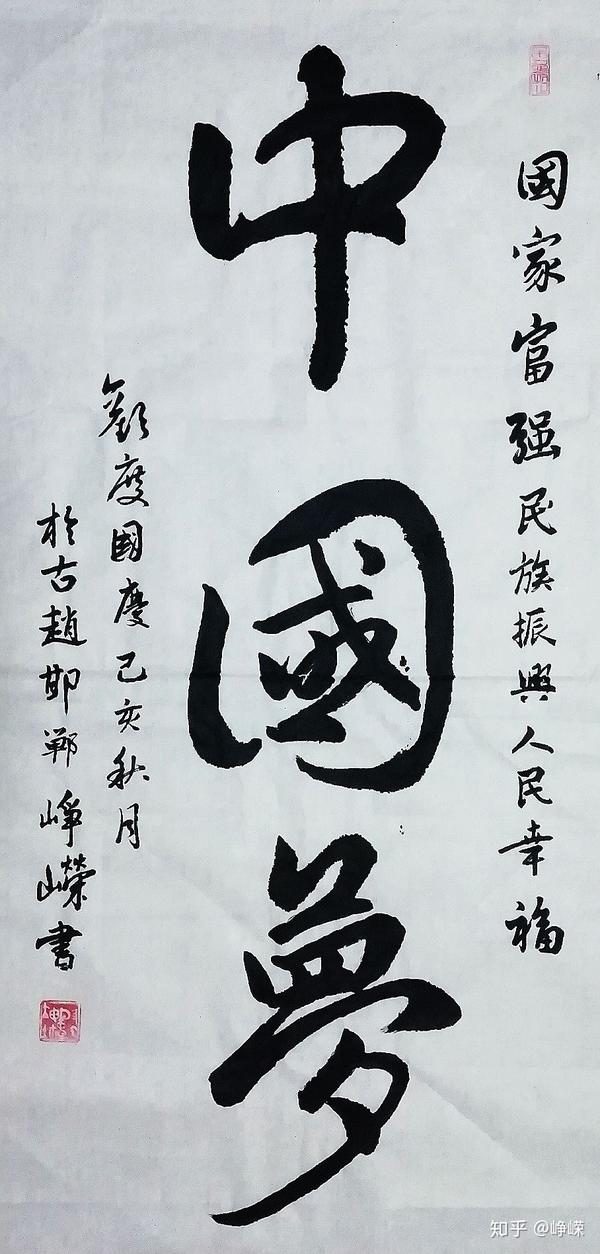 國家富强民族振興人民幸福
中國夢
歡度國慶己亥秋月
於古趙邯鄲崢嶸書
知乎 @峥嵘